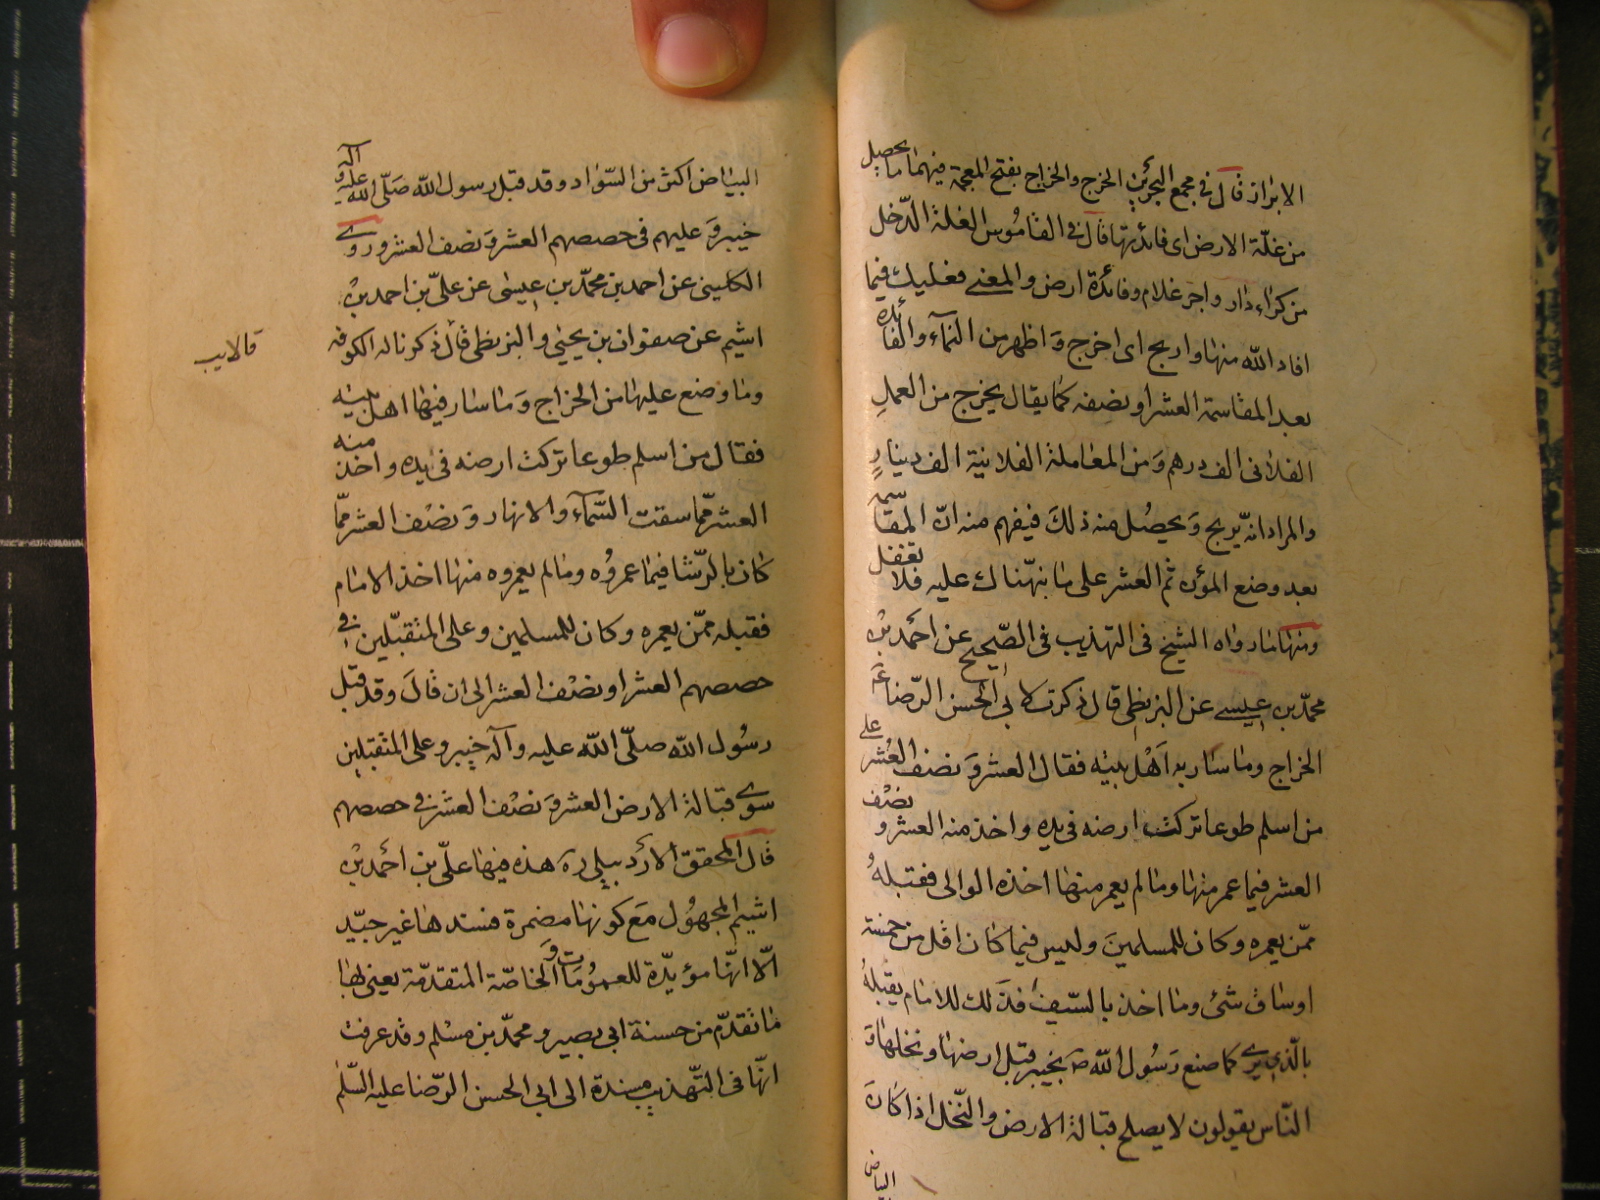 الابراز قال في مجمع البحرين الخرج والخراج بفتح المعجمة فيهما ما يحصل
من غلّة الارض اى فائدتها قال في القاموس الغلة الدّخل
من كراء دار واجر غلام وفائدة ارض والمعنى فعليك فيما
افاد الله منها واربح اى اخرج واظهر من النمآء والفائدة
بعد المقاسمة العشر او نصفه كما يقال يخرج من العمل
الفلانى الف درهم ومن المعاملة الفلانية الف دينار
والمراد انّه يربح ويحصل منه ذلك فيفهم منه انّ المقاسمة
بعد وضع المؤن ثم العشر على ما نبهّناك عليه فلا تغفل
ومنها ما رواه الشيخ فى التهذيب فى الصّحيح عن احمد بن
محمّد بن عيسى عن البزنطى قال ذكرت لابى الحسن الرّضا ع
الخراج وما سار به اهل بيته فقال العشر ونصف العشر على
من اسلم طوعا تركت ارضه فى يده واخذ منه العشر ونصف
العشر فيما عمر منها وما لم يعمر منها اخذه الوالى فقبله
ممّن يعمره وكان للمسلمين وليس فيما كان اقل من خمسة
اوساق شئ وما اخذ بالسّيف فذلك للامام يقبله
بالّذى يرى كما صنع رسول الله ص بخيبر قبل ارضها ونخلها و
النّاس يقولون لا يصلح قبالة الارض والنّخل اذا كان
البياض
البياض اكثر من السّواد وقد قبل رسول الله صلّى الله عليه وآله
خيبر وعليهم فى حصصهم العشر ونصف العشر وروى
الكلينى عن احمد بن محمّد بن عيسى عن علىّ بن احمد بن
اشيم عن صفوان بن يحيى والبزنطى قال ذكرنا له الكوفة
وما وضع عليها من الخراج وما سار فيها اهل بيته
فقال من اسلم طوعا تركت ارضه فى يده واخذ منه
العشر ممّا سقت السّمآء والانهار ونصف العشر ممّا
كان بالرّشا فيما عمروه وما لم يعمروه منها اخذ الامام
فقبله ممّن يعمره وكان للمسلمين وعلى المتقبّلين فى
حصصهم العشر او نصف العشر الى ان قال وقد قبل
رسول الله صلّى الله عليه وآله خيبر وعلى المتقبلين
سوى قبالة الارض العشر ونصف العشر فى حصصهم
قال المحقق الاردبيلى ره هذه فيها علىّ بن احمد بن
اشيم المجهول مع كونها مضمرة فسندها غير جيّد
الّا انّها مؤيّدة للعمومات والخاصّة المتقدّمة يعنى بها
ما تقدّم من حسنة ابى بصير ومحمّد بن مسلم وقد عرفت
انّها فى التّهذيب مسندة الى ابى الحسن الرّضا عليه السّلم